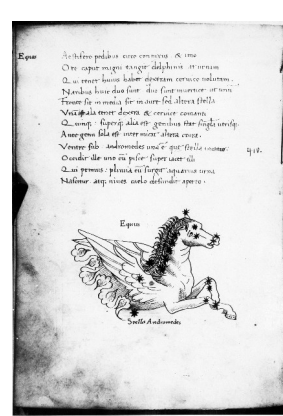 Equus
Aestifero pedibus circo connexus & imo
Ore caput magni tangit delphinis et urnam
Qui tenet huius habet dextram cervice volutam.
Naribus huic duo sunt duo sunt
Fronte sit in media sit in aure sed altera stella
ala tenet dextra & cervice comanti
alia est genibus stat
Ante genu sola est inter micat altera crura.
Ventre sub andromedes una est que stella
418.
Occidit ille uno cū pisce super iacet illi
Qui primus: plenua cū surgit aquarius urna
Nascitur atq; nives caelo defundit aperto.
Equus
Stella Andromedes